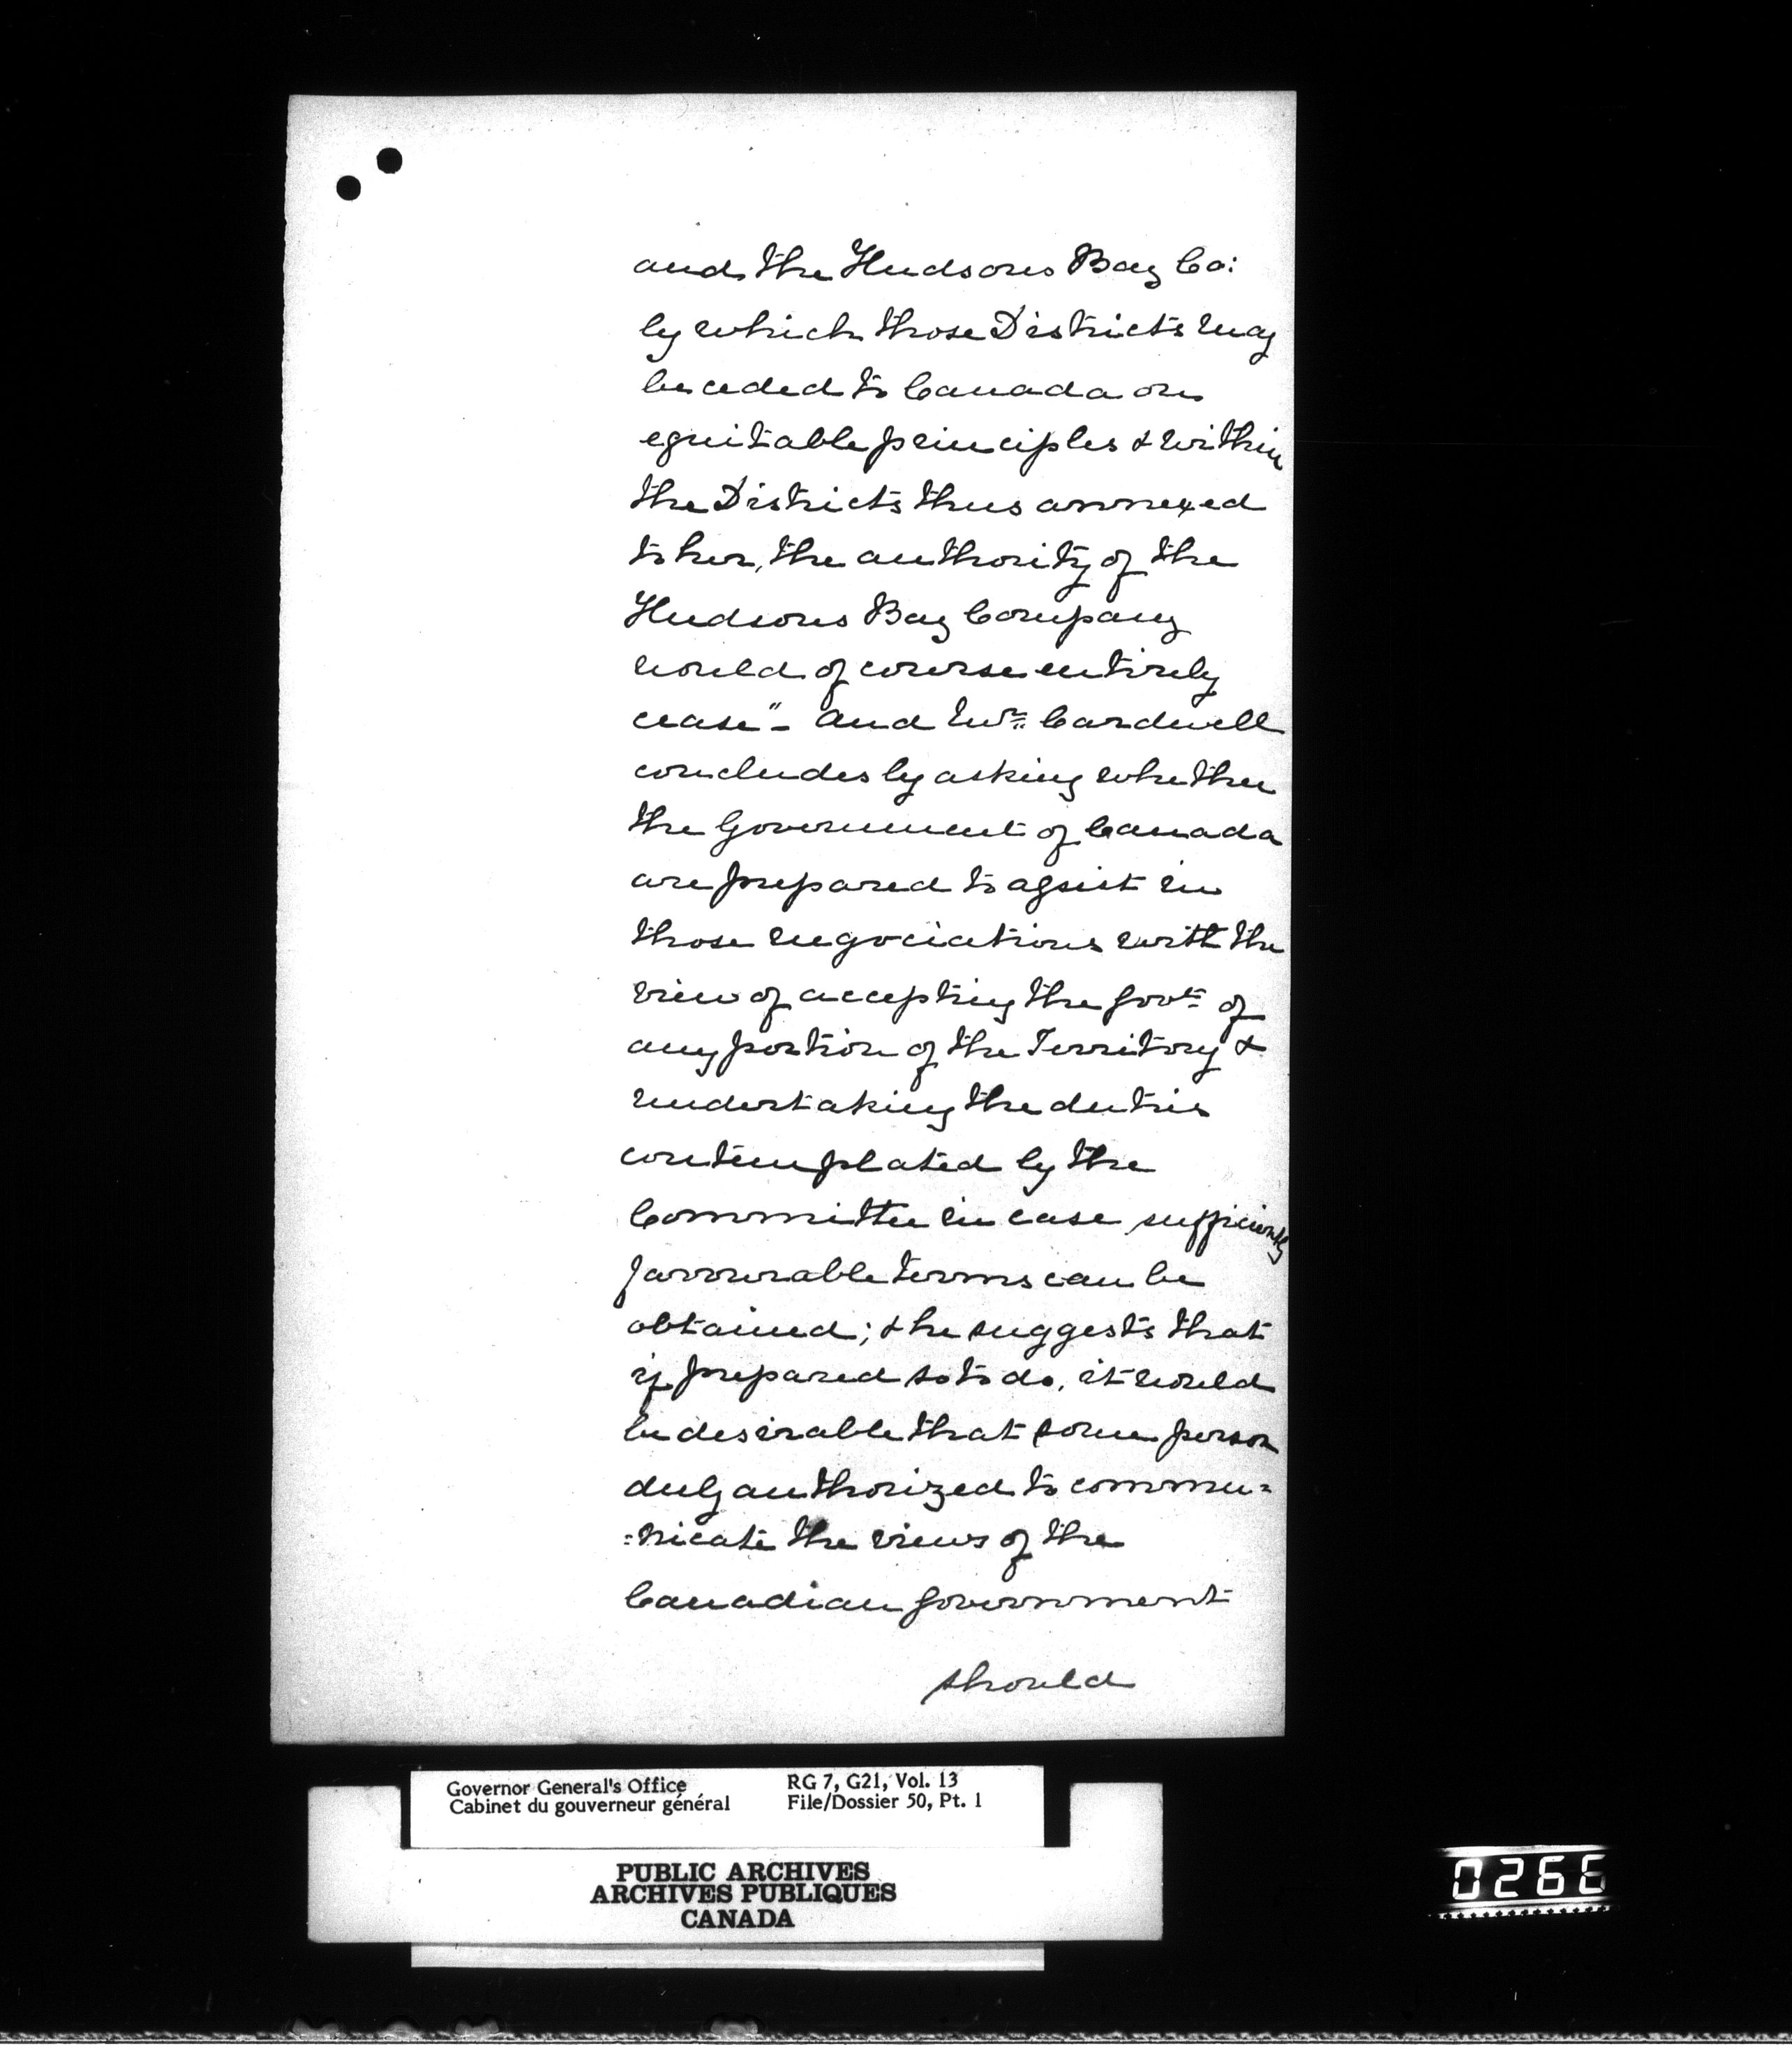 and the Hudsons Bay Co:
by which those Districts may
be ceded to Canada on
equitable principles & within
the Districts thus annexed
to her, the authority of the
Hudsons Bay Company
would of course entirely
cease"- And Mr. Cardwell
concludes by asking whether
the Government of Canada
are prepared to assist in
those negociations with the
view of accepting the Govt of
any portion of the Territory &
undertaking the duties
contemplated by the
Committee in case sufficiently
favourable terms can be
obtained; & he suggests that
if prepared so to do, it would
be desirable that some person
duly authorized to commu=
=nicate the views of the
Canadian Government
should
Governor General's Office RG 7, G21, Vol. 13
Cabinet du gouverneur général File/Dossier 50, Pt. 1
PUBLIC ARCHIVES
ARCHIVES PUBLIQUES
CANADA